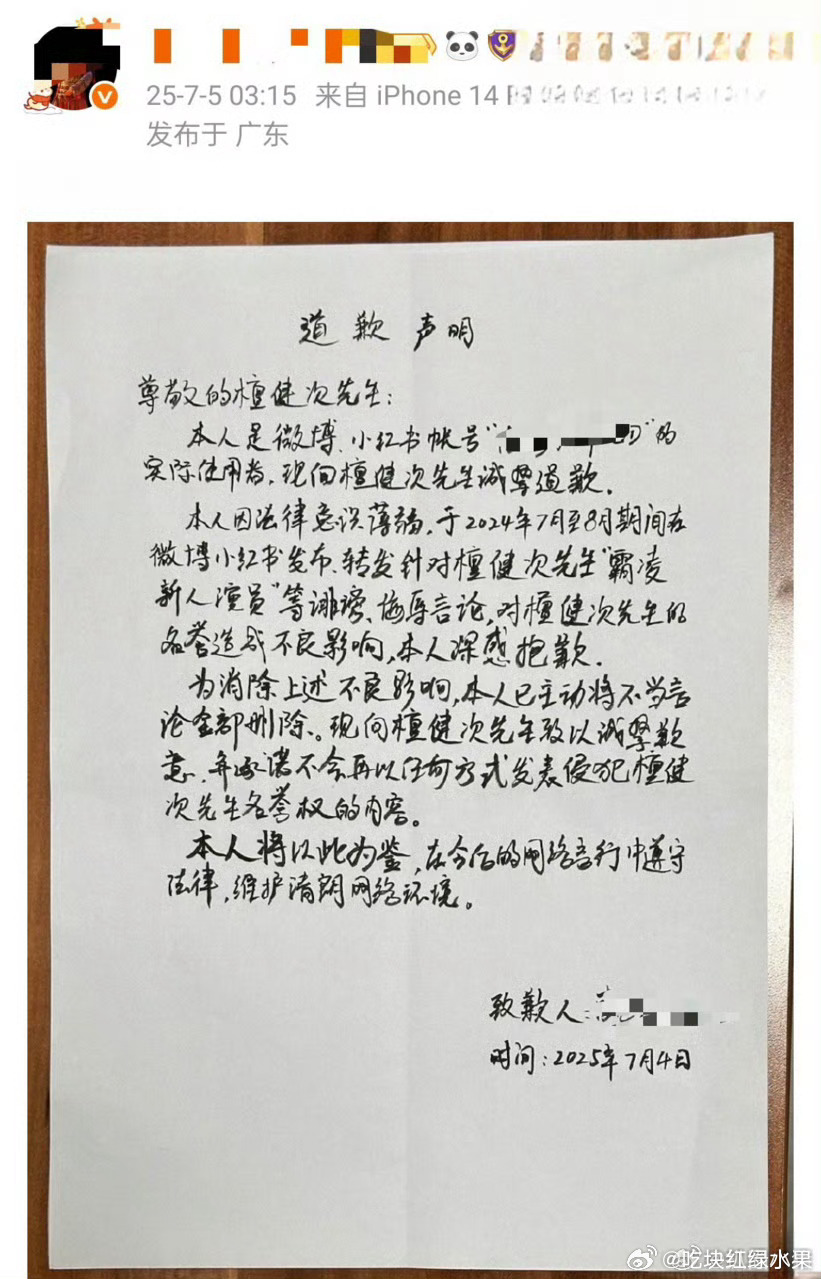 25-7-5 03:15 来自 iPhone 14
发布于 广东
道歉声明
尊敬的檀健次先生：
本人是微博、小红书帐号“ ”的
实际使用者，现向檀健次先生诚挚道歉．
本人因法律意识薄弱，于2024年7月至8月期间在
微博小红书发布、转发针对檀健次先生“霸凌
新人演员”等诽谤、侮辱言论，对檀健次先生的
名誉造成不良影响，本人深感抱歉．
为消除上述不良影响，本人已主动将不当言
论全部删除。现向檀健次先生致以诚挚歉
意，并承诺不会再以任何方式发表侵犯檀健
次先生名誉权的内容。
本人将以此为鉴，在今后的网络言行中遵守
法律，维护清朗网络环境。
致歉人
时间：2025年7月4日
@吃块红绿水果